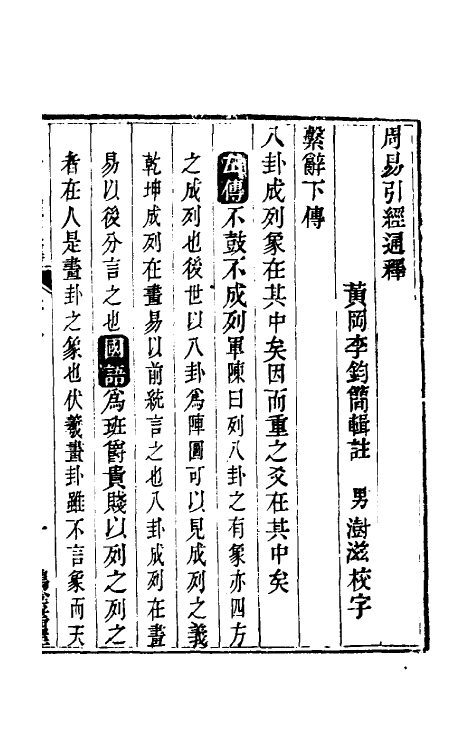 周易引經通釋
黃岡李鈞簡輯註　男澍滋校字
繫辭下傳
八卦成列象在其中矣因而重之爻在其中矣
左傳不鼓不成列軍陳曰列八卦之有象亦四方
之成列也後世以八卦爲陣圖可以見成列之義
乾坤成列在畫易以前統言之也八卦成列在畫
易以後分言之也國語爲班爵貴賤以列之列之
者在人是畫卦之象也伏羲畫卦雖不言象而天